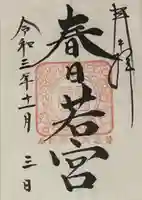 奉拝
春日若宮
令和三年十一月
三日